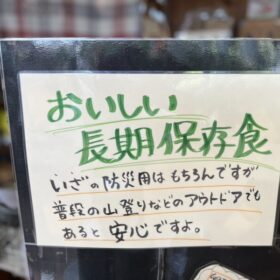 おいしい
長期保存食
いざの防災用はもちろんですが
普段の山登りなどのアウトドアでも
あると安心ですよ。